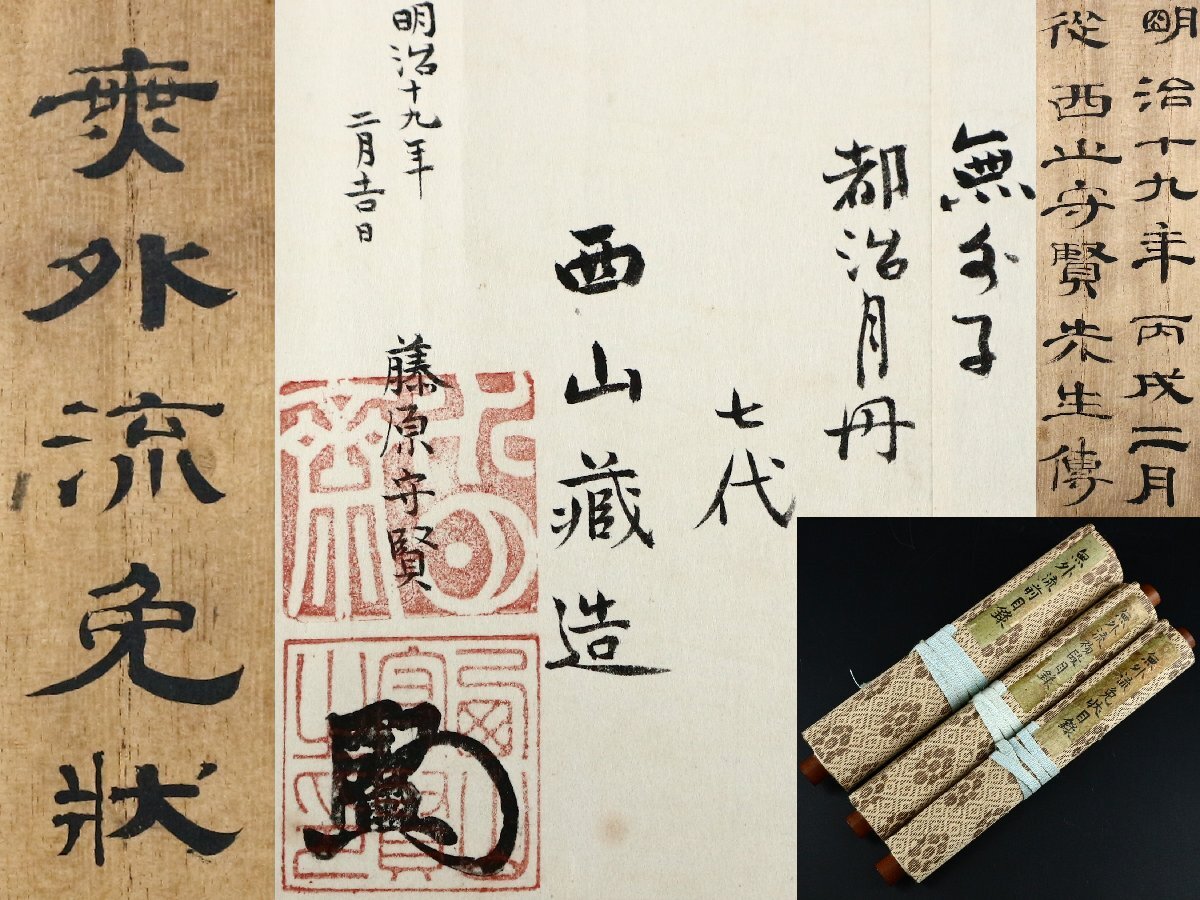 明治十九年丙戌二月
從西山守賢先生傳
無外子
都治月丹
七代
西山藏造
明治十九年
二月吉日
藤原守賢
無外流免狀
無外流前目錄
無外流目錄
無外流免狀目錄